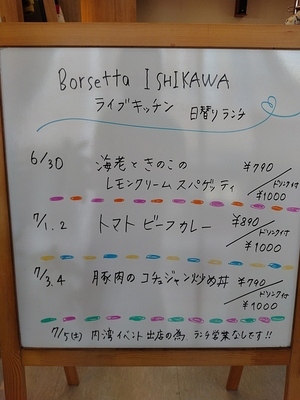 Borsetta ISHIKAWA
ライブキッチン 日替りランチ
6/30 海老ときのこの ¥790
レモンクリームスパゲッティ ドリンク付
¥1000
7/1.2 トマトビーフカレー ¥890
ドリンク付
¥1000
7/3.4 豚肉のコチュジャン炒め丼 ¥790
ドリンク付
¥1000
7/5(土) 内湾イベント出店の為 ランチ営業なしです!!